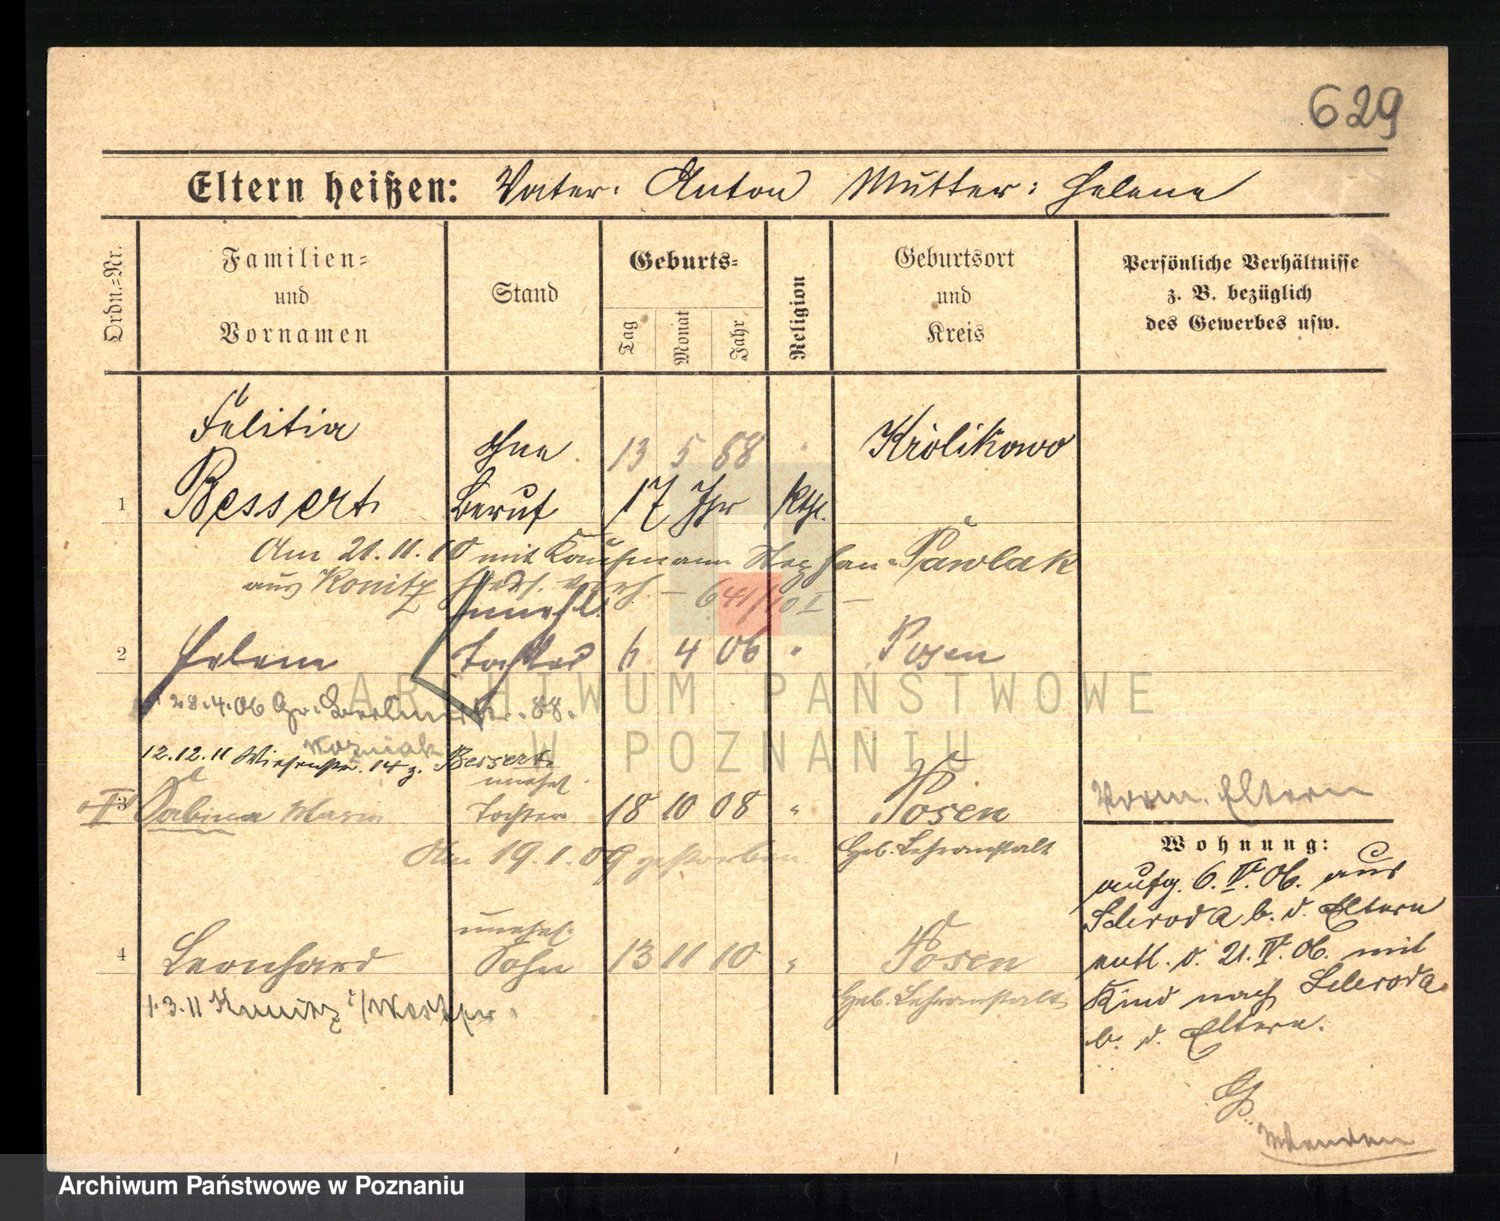 629
Eltern heißen: Vater: Anton Mutter: Helene
Ordn.-Nr.
Familien-
und
Vornamen
Stand
Geburts-
Tag
Monat
Jahr
Religion
Geburtsort
und
Kreis
Persönliche Verhältnisse
z. B. bezüglich
des Gewerbes usw.
Felitia
ohne 13 5 88 Królikowo
1 Bessert Beruf 17 Jhr kth.
Am 21.11.10 mit Kaufmann Stephan Pawlak
aus Konitz verh. – 641/10 I –
unehl.
2 Helene Tochter 6 4 06 " Posen
28.4.06 Gr. Berlinerstr. 88.
Wozniak
12.12.11 Wiesenstr. 14 z. Bessert
unehel.
3 Sabina Maria Tochter 18 10 08 " Posen
Am 19.1.09 gestorben Heb. Lehranstalt
unehel.
4 Leonhard Sohn 13 11 10 " Posen
1.3.11 i/Westpr. Heb. Lehranstalt
Vorm. Eltern
Wohnung:
aufg. 6. IV. 06. aus
b. d. Eltern
entl. d. 21. IV. 06. mit
Kind nach
b. d. Eltern.
ARCHIWUM PAŃSTWOWE
W POZNANIU
Archiwum Państwowe w Poznaniu